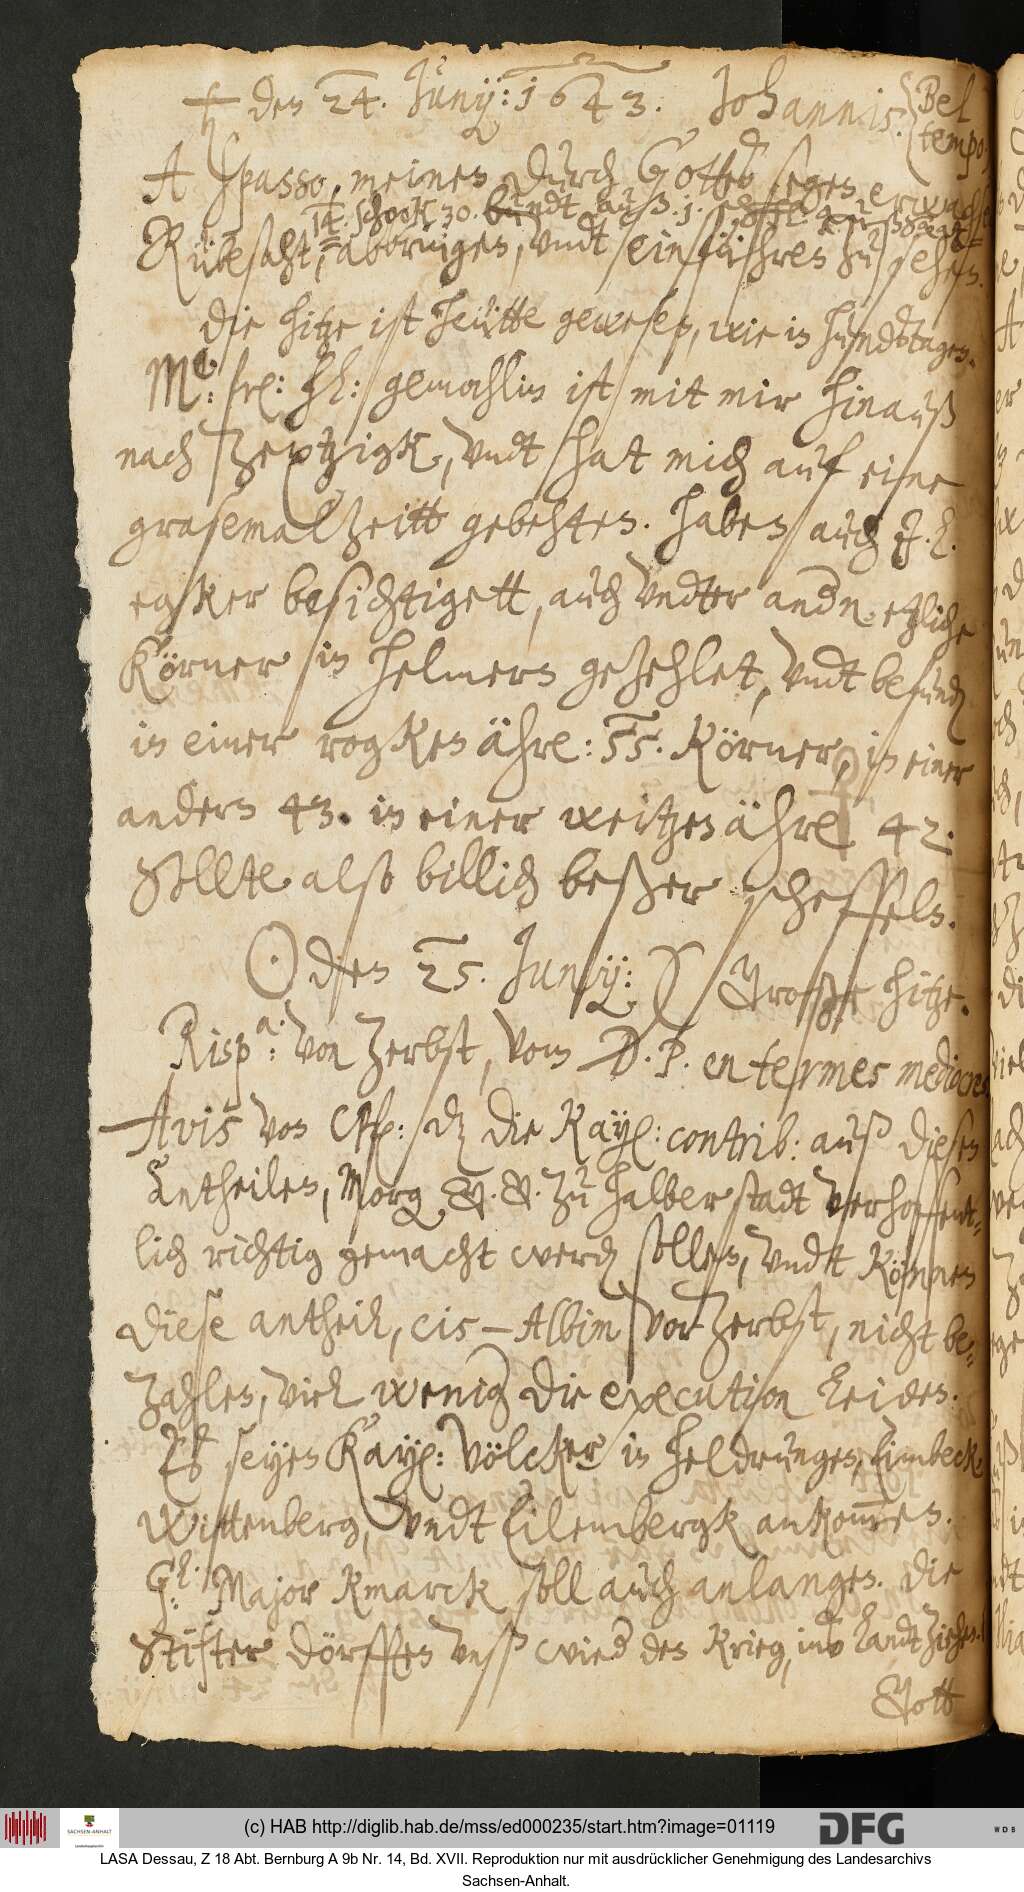 ♄ den 24. Junij: 1643. Johannis. {Bel
{tempo.
A spasso, meinen durch Gottes segen erwachsenen
14. schock 30. bundt auß. 1.
Rübesaht, abbringen, undt einführen zu sehen.
Die hitze ist heütte gewesen, wie in hundstagen.
Me: fre: hl: gemahlin ist mit mir hinauß
nach Zeptzigk, undt hat mich auf eine
grasemalzeitt gebehten. haben auch J. L.
egker besichtigett, auch undter andn. etzliche
Körner in helmern gezehlet, undt befunden
in einer rogken ährl: 55. Körner, in einer
andern 43. in einer weitzen ährl 42.
Sollte also billich beßer scheffeln.
☉ den 25. Junij: Große hitze.
Rispa: von Zerbst, vom D. P. en termes mediocres
Avis von CPf: dz die Kayl: contrib: auß diesen
Antheilen, Morg & &. zu halberstadt verhoffent-
lich richtig gemacht werden sollen, undt Können
diese antheil, cis-Albim vor Zerbst, nicht be-
zahlen, viel weniger die execution leiden.
Es seyen Kayl: völcker in heldrungen, Eimbeck
Wittenberg, undt Eilembergk ankommen.
G. L. Major Kmarck soll auch anlangen. die
Stifter dörffen unß wieder den Krieg, ins landt ziehen.
Gott
(c) HAB http://diglib.hab.de/mss/ed000235/start.htm?image=01119
DFG
WDB
SACHSEN-ANHALT
LASA Dessau, Z 18 Abt. Bernburg A 9b Nr. 14, Bd. XVII. Reproduktion nur mit ausdrücklicher Genehmigung des Landesarchivs
Sachsen-Anhalt.